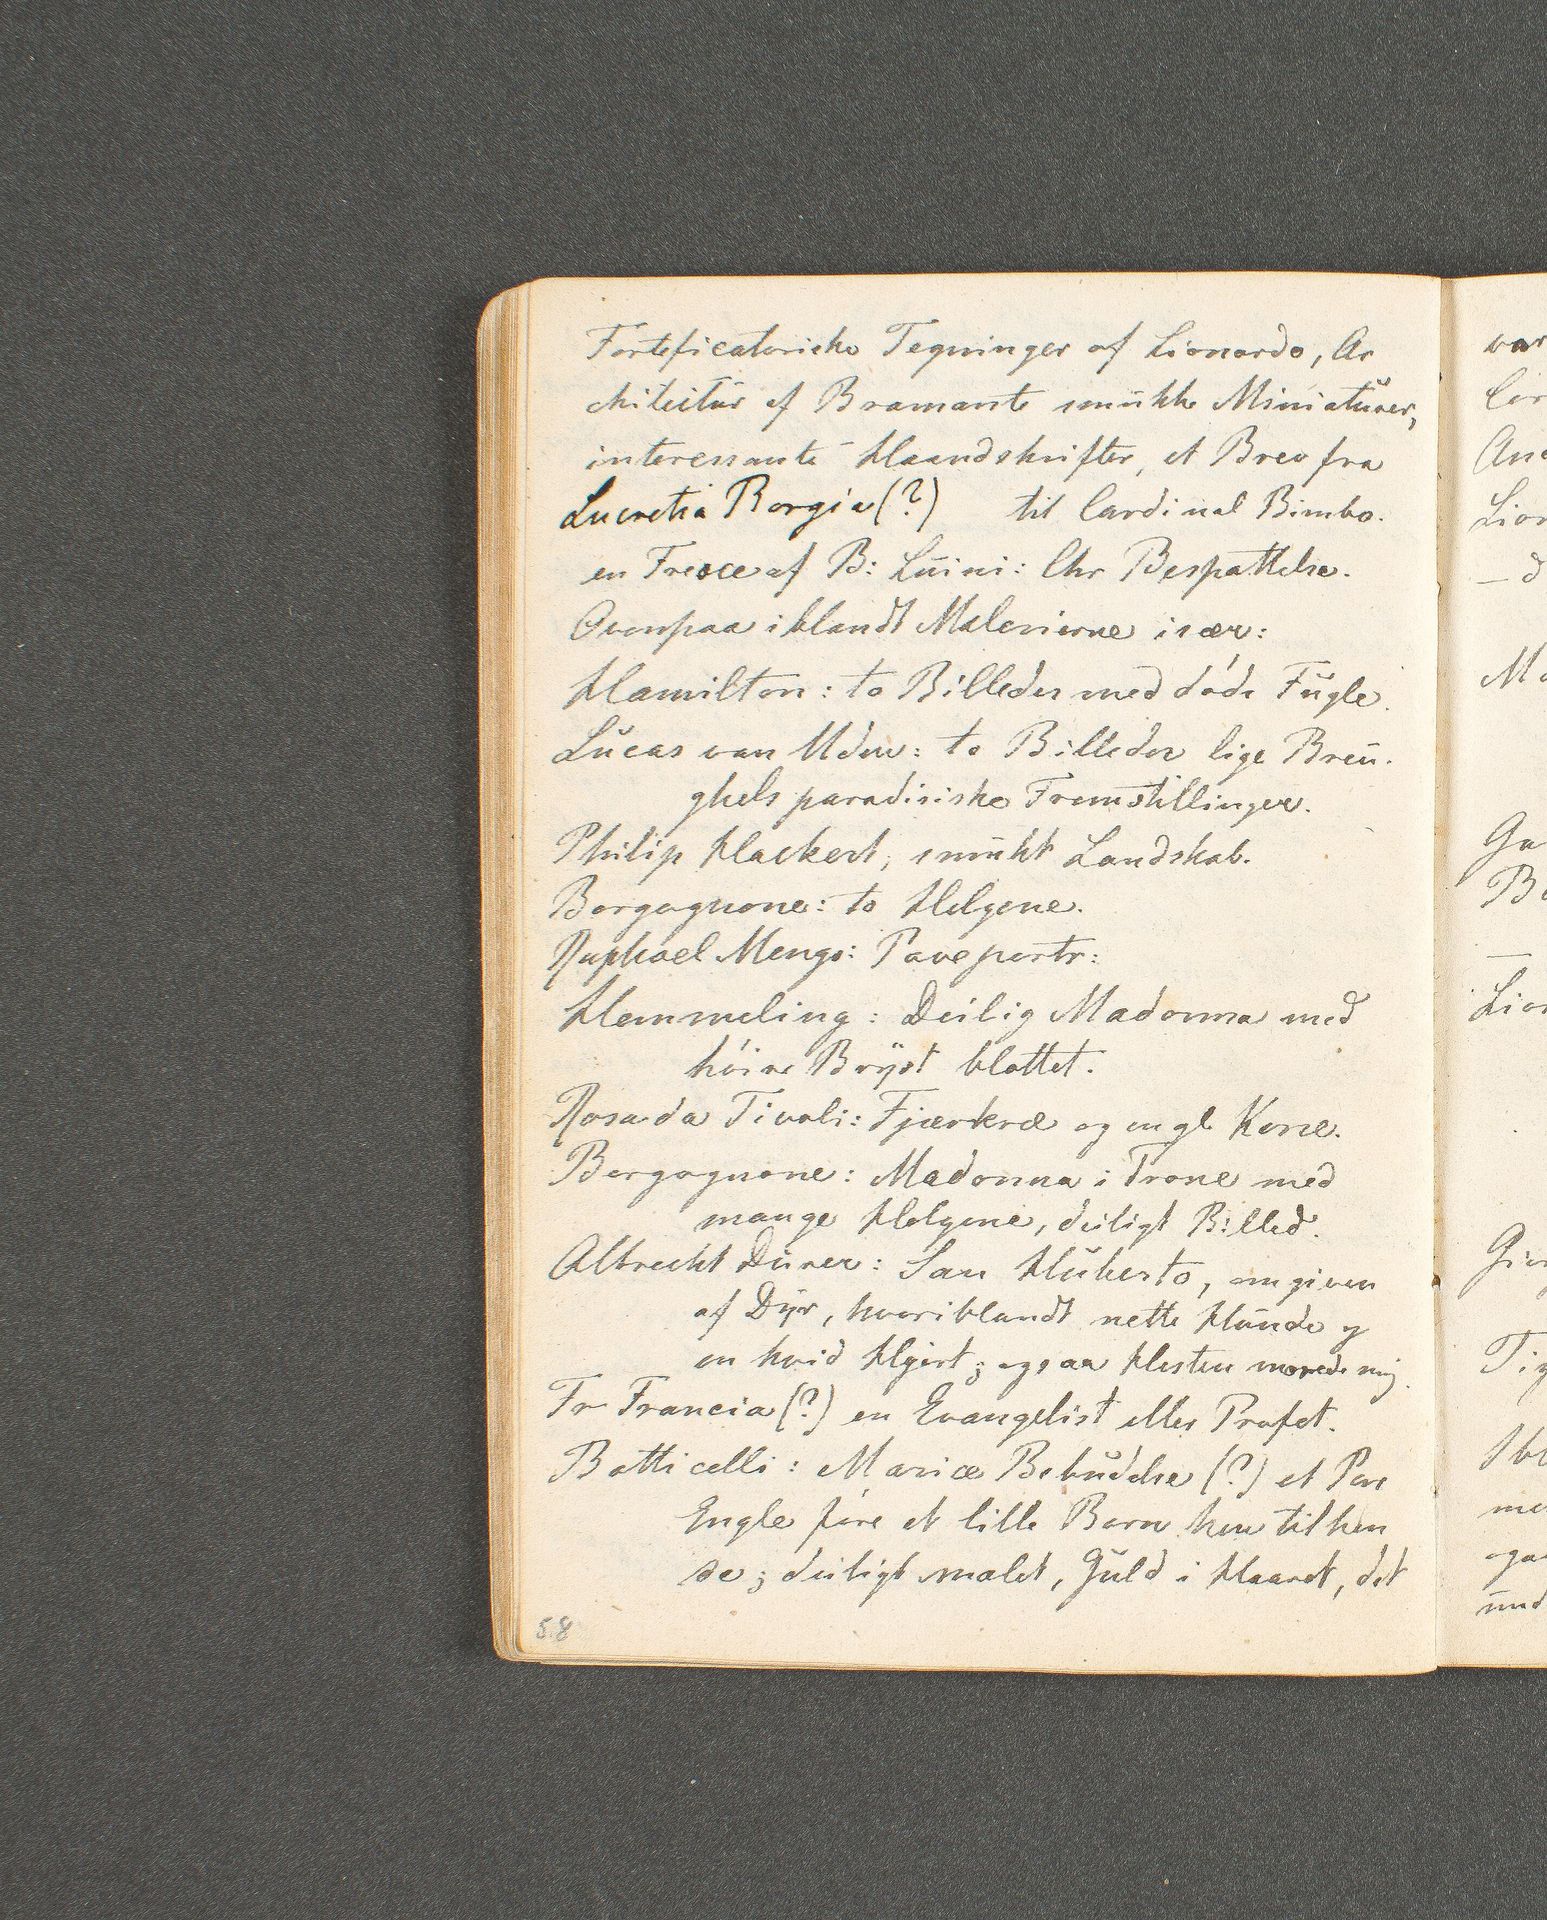 Forteficatoriske Tegninger af Lionardo, Ar
chitectur af Bramante smukke Miniaturer,
interessante Haandskrifter, et Brev fra
Lucretia Borgia (?) til Cardinal Bimbo.
en Fresce af B: Luini: Chr Bespottelse.
Ovenpaa iblandt Malerierne især:
Hamilton: to Billeder med døde Fugle.
Lucas van Uden: to Billeder lige Breu-
ghels paradisiske Fremstillinger.
Philip Hackert, smukt Landskab.
Borgognone: to Helgene.
Raphael Mengs: Paveportr:
Hemmeling: Deilig Madonna med
høire Bryst blottet.
Rosa da Tivoli: Fjærkræ og en gl Kone.
Borgognone: Madonna i Trone med
mange Helgene, deiligt Billed.
Albrecht Dürer: San Huberto, omgiven
af Dyr, hvoriblandt nette Hunde og
en hvid Hjort; ogsaa Hesten morede mig.
Fr Francia (?) en Evangelist eller Profet.
Botticelli: Mariæ Bebudelse (?) et Par
Engle føre et lille Barn hen til hen
de; deiligt malet, Guld i Haaret, det
58
var
Lion
Ma
Lion